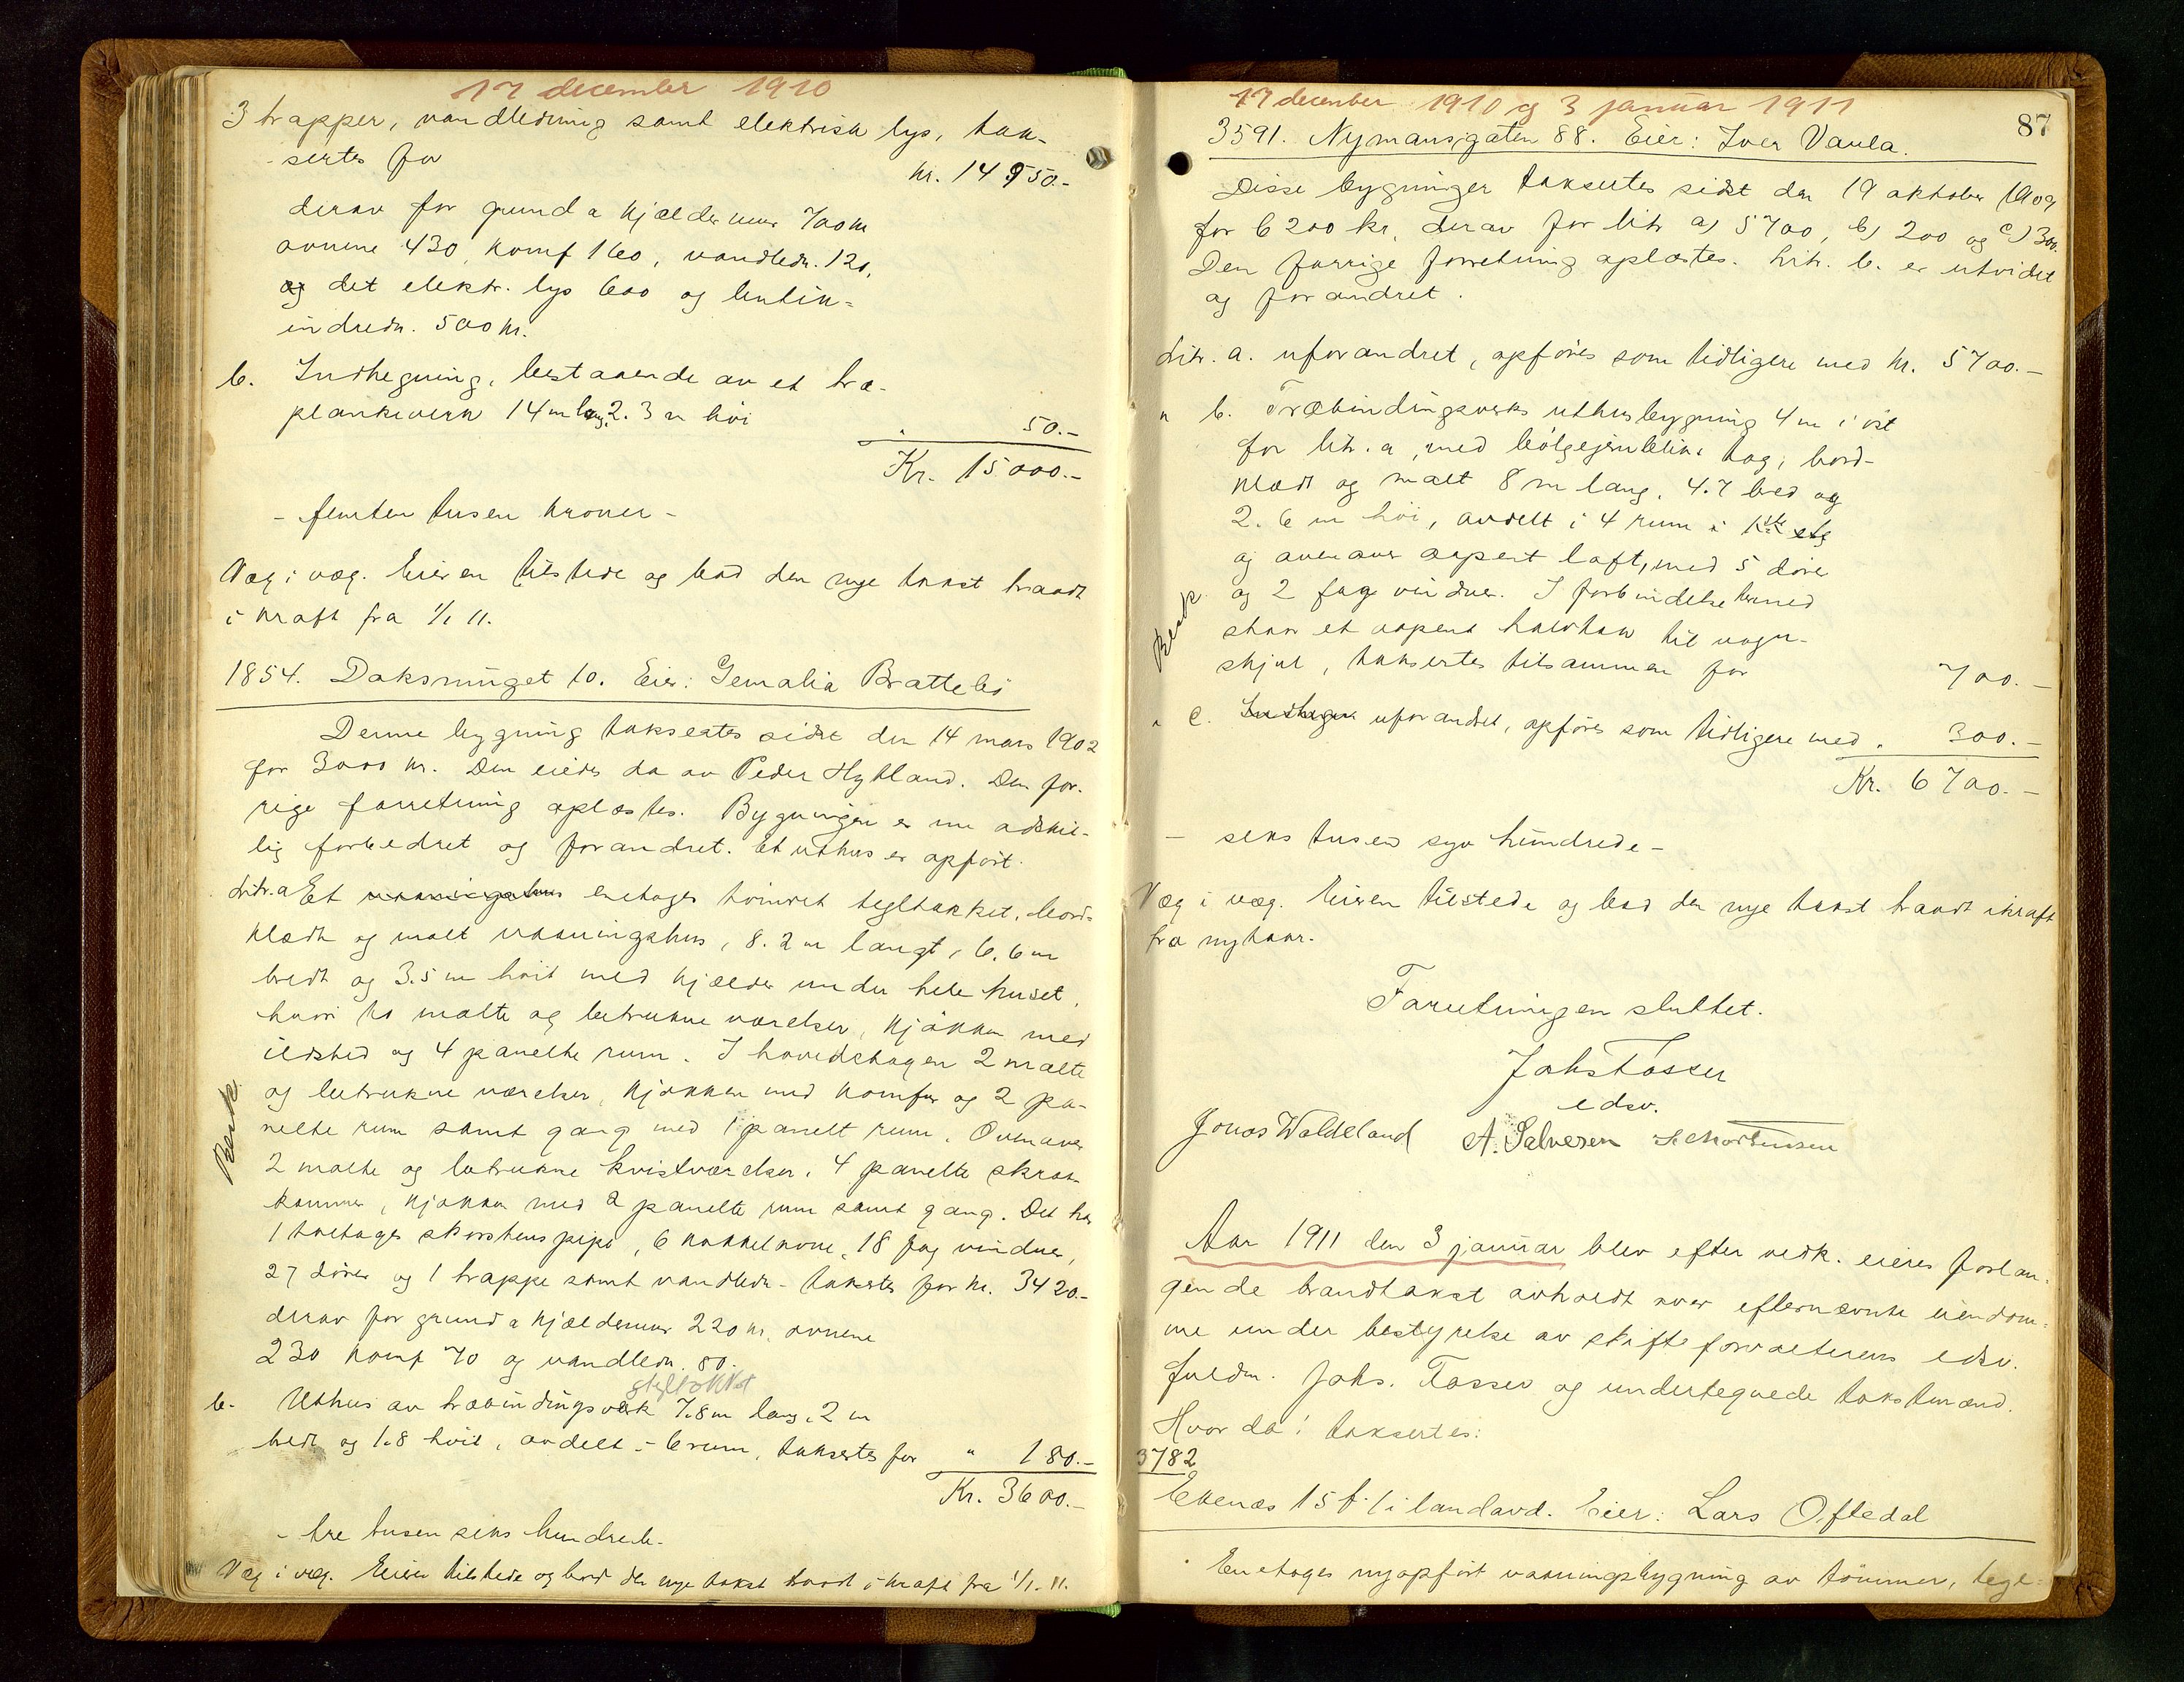 17 december 1910
3 trapper, vandledning samt elektrisk lys, tak-
sertes for kr. 14 950.-
derav for grund a kjælder mur 700 kr
ovnene 430, komf 160, vandledn. 120,
og det elektr. lys 600 og butik-
indredn. 500 kr.
b. Indhegning, bestaaende av et træ-
plankeverk 14 m lang, 2.3 m høi " 50.-
Kr. 15000.-
- femten tusen kroner -
Væg i væg. Eieren tilstede og bad den nye takst traadt
i kraft fra 1/1 11.
1854. Daksvinget 10. Eier: Gemalia Brattebø
Denne bygning taksertes sidst den 14 mars 1902
for 3000 kr. Den eiedes da av Peder Hytland. Den for-
rige forretning oplæstes. Bygningen er nu adskil-
lig forbedret og forandret. Et uthus er opført.
Litr. a Et vaaningshus enetages tømret tegltækket, bord-
klædt og malt vaaningshus, 8.2 m langt, 6.6 m
bredt og 3.5 m høit med kjælder under hele huset,
hvori to malte og betrukne værelser, kjøkken med
ildsted og 4 panelte rum. I hovedetagen 2 malte
og betrukne værelser, kjøkken med komfur og 2 pa-
nelte rum samt gang med 1 panelt rum. Ovenover
2 malte og betrukne kvistværelser, 4 panelte skraa-
kammer, kjøkken med 2 panelte rum samt gang. Det har
1 toetages skorstenspipe, 6 kakkelovne, 18 fag vinduer,
27 dører og 1 trappe samt vandledn. - takserts for kr. 3420.-
derav for grund a kjældermur 220 kr, ovnene
230 komf 70 og vandledn. 80.
gtegltækket
b. Uthus av træbindingsverk 7.8 m lang, 2 m
bredt og 1.8 høit, avdelt i 6 rum, taksertes for " 180.-
Kr. 3600.-
- tre tusen seks hundrede.
Væg i væg. Eieren tilstede og bad den nye takst traadt i kraft fra 1/1. 11.
Besk.
17 december 1910 og 3 januar 1911
87
3591. Nymansgaten 88. Eier: Iver Vaula.
Disse bygninger taksertes sidst den 19 oktober 1909
for 6200 kr, derav for litr a) 5700, b) 200 og c) 300.
Den forrige forretning oplæstes. Litr. b. er utvidet
og forandret.
Litr. a. uforandret, opføres som tidligere med kr. 5700.-
" b. Træbindingsverks uthusbygning 4 m i øst
for litr. a, med bølgejernblik tag, bord-
klædt og malt 8 m lang, 4.7 bred og
2.6 m høi, avdelt i 4 rum i 1ste etg
og ovenover aapent loft, med 5 dører
og 2 fag vinduer. I forbindelse hermed
staar et aapent halvtak til vogn-
skjul, taksertes tilsammen for 700.-
Besk.
" c. Indhegn uforandret, opføres som tidligere med " 300.-
Kr. 6700.-
- seks tusen syv hundrede -
Væg i væg. Eieren tilstede og bad den nye takst traadt ikraft
fra nytaar.
Forretningen sluttet.
Johs Tosser
edsv.
Jonas Waldeland A. Salvesen S. Mortensen
Aar 1911 den 3 januar blev efter vedk. eieres forlan-
gende brandtakst avholdt over efternævnte eiendom-
me under bestyrelse av skifteforvalterens edsv.
fuldm. Johs. Tosser og undertegnede takstmænd.
Hvor da: taksertes:
3782
Ekenæs 15 f. 1 i landavd. Eier: Lars Oftedal
Enetages nyopført vaaningsbygning av tømmer, tegl-